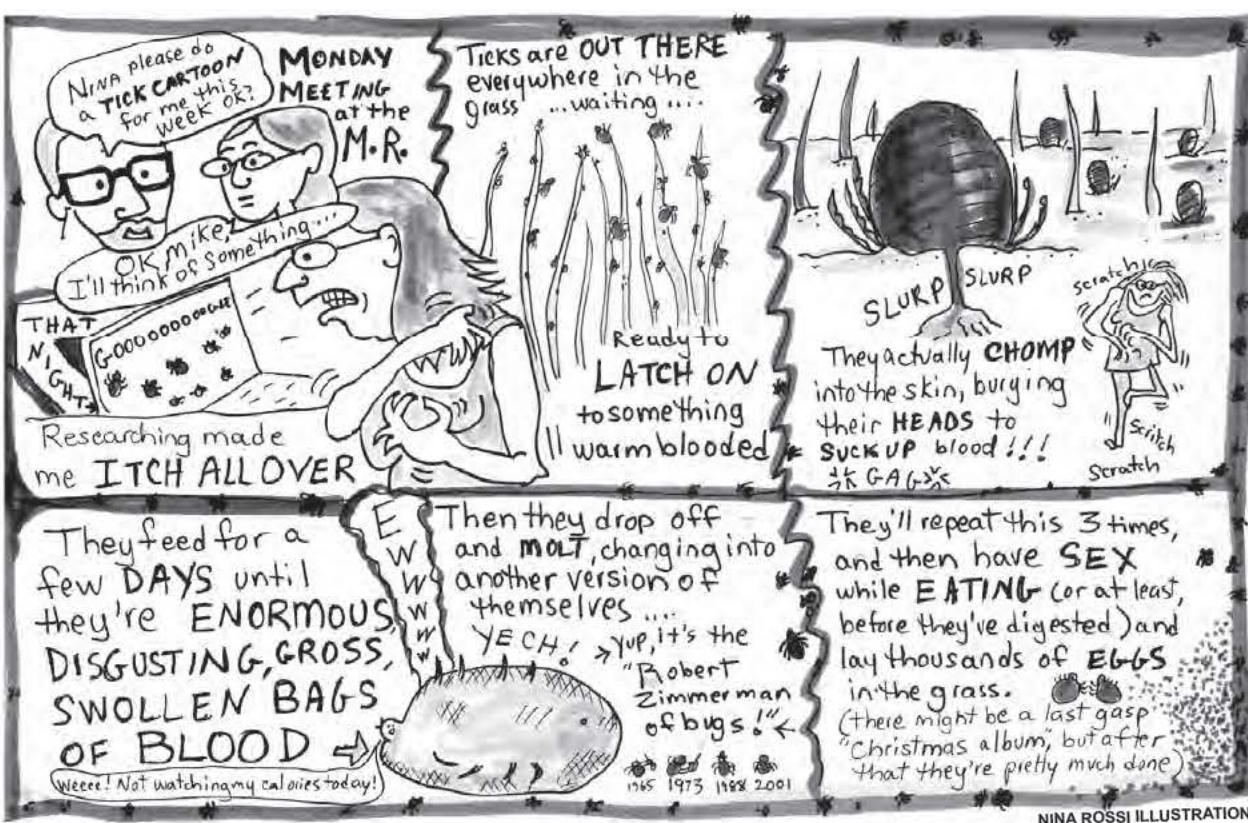 NINA please do
a TICK CARTOON
for me this
week OK?
MONDAY
MEETING
at the
M.R.
OK Mike,
I'll think of something....
THAT
NIGHT
GOOOOOOOOGLE
Researching made
me ITCH ALL OVER
TICKS are OUT THERE
everywhere in the
grass ...waiting....
Ready to
LATCH ON
to something
warm blooded
SLURP SLURP
They actually CHOMP
into the skin, burying
their HEADS to
SUCK UP blood!!!
GAG
scratch
Scritch
Scratch
They feed for a
few DAYS until
they're ENORMOUS,
DISGUSTING, GROSS,
SWOLLEN BAGS
OF BLOOD
Weeee! Not watching my calories today!
EWWWWWW
Then they drop off
and MOLT, changing into
another version of
themselves....
YECH!
Yup, it's the
"Robert
Zimmerman
of bugs!"
1965 1973 1988 2001
They'll repeat this 3 times,
and then have SEX
while EATING (or at least,
before they've digested) and
lay thousands of EGGS
in the grass.
(there might be a last gasp
"Christmas album", but after
that they're pretty much done)
NINA ROSSI ILLUSTRATION